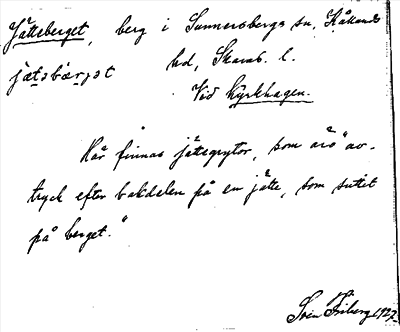 Jätteberget, berg i Sunnersbergs sn, Kållands
jæ̀təbær̨ət hd, Skarab. l.
Vid Kyrkhagen.
Här finnas jättegrytor, som äro "av-
tryck efter bakdelen på en jätte, som suttit
på berget."
Sven Friberg 1927.